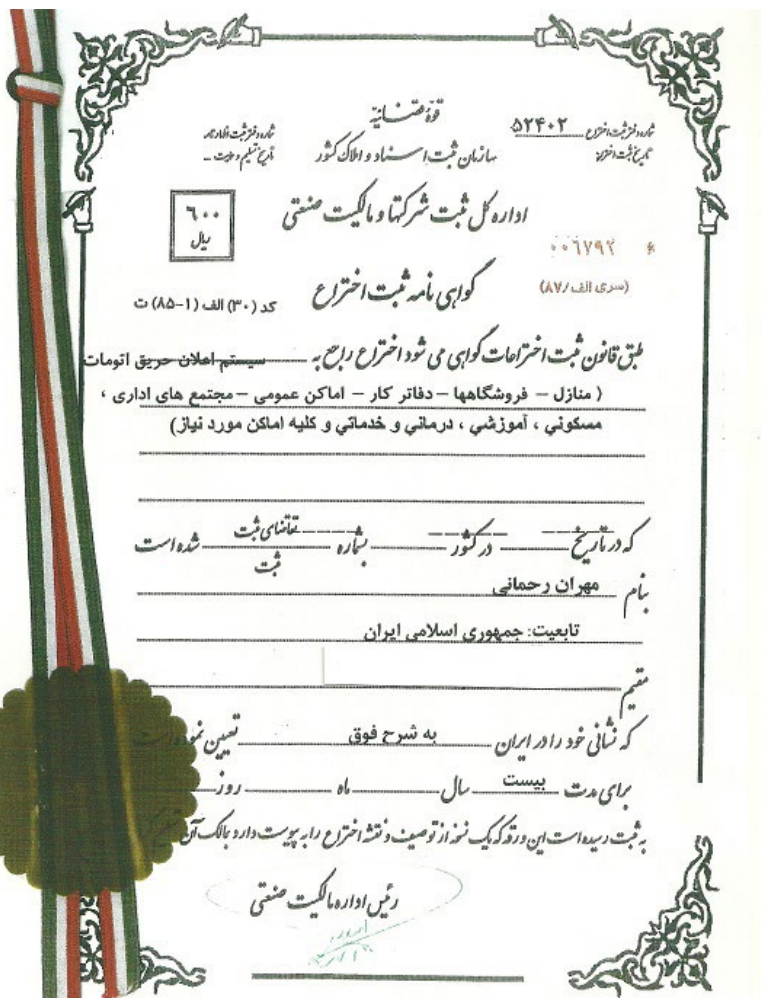 قوّه قضائیّه
شماره دفتر ثبت اختراع ۵۲۴۰۲
تاریخ ثبت اختراع
سازمان ثبت اسناد و املاک کشور
شماره دفتر ثبت اظهارنامه
تاریخ تسلیم
اداره کل ثبت شرکتها و مالکیت صنعتی
٦٠٠
ریال
* ٠٠٦٧٩٢
(سری الف/۸۷)
گواهی نامه ثبت اختراع
کد (۳۰) الف (۱-۸۵) ت
طبق قانون ثبت اختراعات گواهی می شود اختراع راجع به سیستم اعلان حریق اتومات
( منازل – فروشگاهها – دفاتر کار – اماکن عمومی – مجتمع های اداری ،
مسکوني ، آموزشي ، درماني و خدماتي و کلیه اماکن مورد نیاز)
که در تاریخ ---- در کشور ---- بشماره ---- تقاضای ثبت
ثبت شده است
بنام مهران رحمانی
تابعیت: جمهوری اسلامی ایران
مقیم
که نشانی خود را در ایران به شرح فوق تعیین نموده است
برای مدت بیست سال ماه روز
به ثبت رسیده است این ورقه که یک نسخه از توصیف و نقشه اختراع را به پیوست دارد بمالک آن
رئیس اداره مالکیت صنعتی